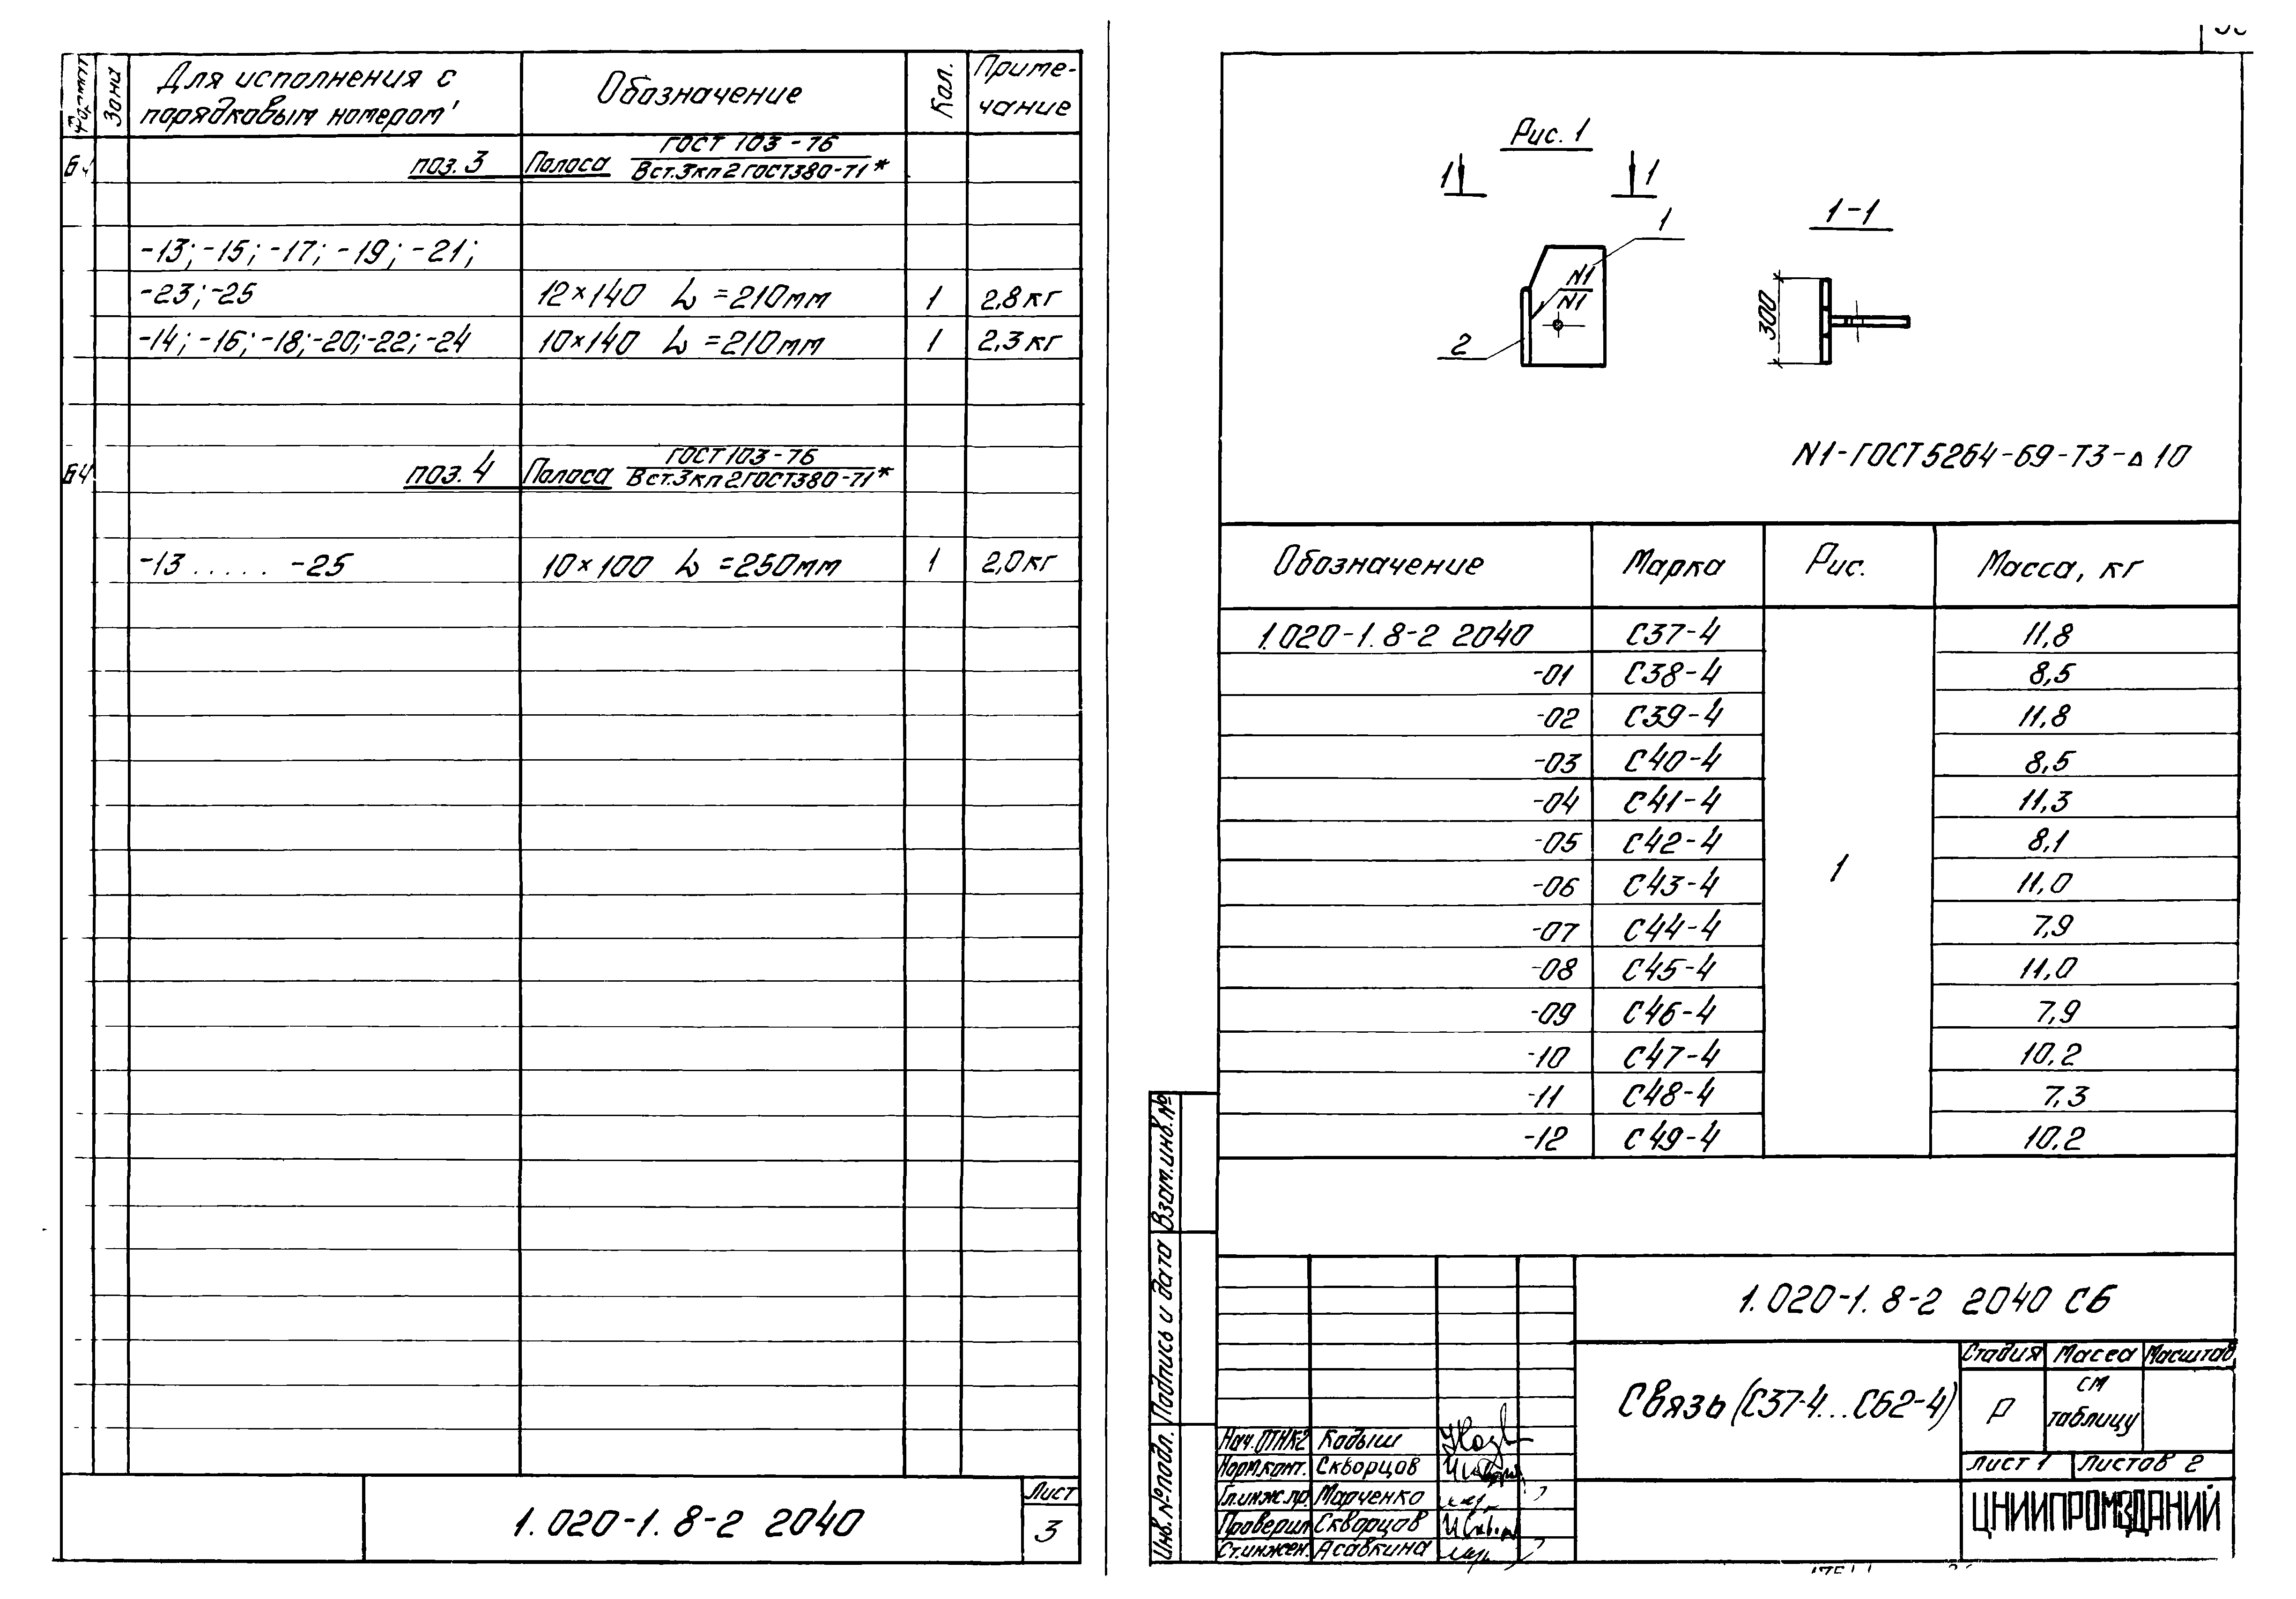 Формат
Зона
Для исполнения с
порядковым номером
Обозначение
Кол.
Приме-
чание
б4
поз. 3
Полоса ГОСТ 103-76
Вст.3кп2 ГОСТ380-71*
-13; -15; -17; -19; -21;
-23; -25 12×140 L=210мм 1 2,8кг
-14; -16; -18; -20; -22; -24 10×140 L=210мм 1 2,3кг
б4
поз. 4
Полоса ГОСТ 103-76
Вст.3кп2 ГОСТ380-71*
-13 ..... -25 10×100 L=250мм 1 2,0кг
1.020-1.8-2 2040
Лист
3
Рис. 1
1 1
1
1-1
N1
N1
2
300
N1-ГОСТ5264-69-Т3-⊿10
Обозначение Марка Рис. Масса, кг
1.020-1.8-2 2040 С37-4 11,8
-01 С38-4 8,5
-02 С39-4 11,8
-03 С40-4 8,5
-04 С41-4 11,3
-05 С42-4 8,1
1
-06 С43-4 11,0
-07 С44-4 7,9
-08 С45-4 11,0
-09 С46-4 7,9
-10 С47-4 10,2
-11 С48-4 7,3
-12 С49-4 10,2
Взам.инв.№
Подпись и дата
Инв.№подл.
1.020-1.8-2 2040 СБ
Связь (С37-4...С62-4)
Стадия Масса Масштаб
Р см
таблицу
Лист 1 Листов 2
ЦНИИПРОМЗДАНИЙ
Нач.ОТНК-2 Кодыш
Норм.конт. Скворцов
Гл.инж.пр. Марченко
Проверил Скворцов
Ст.инжен. Асавкина